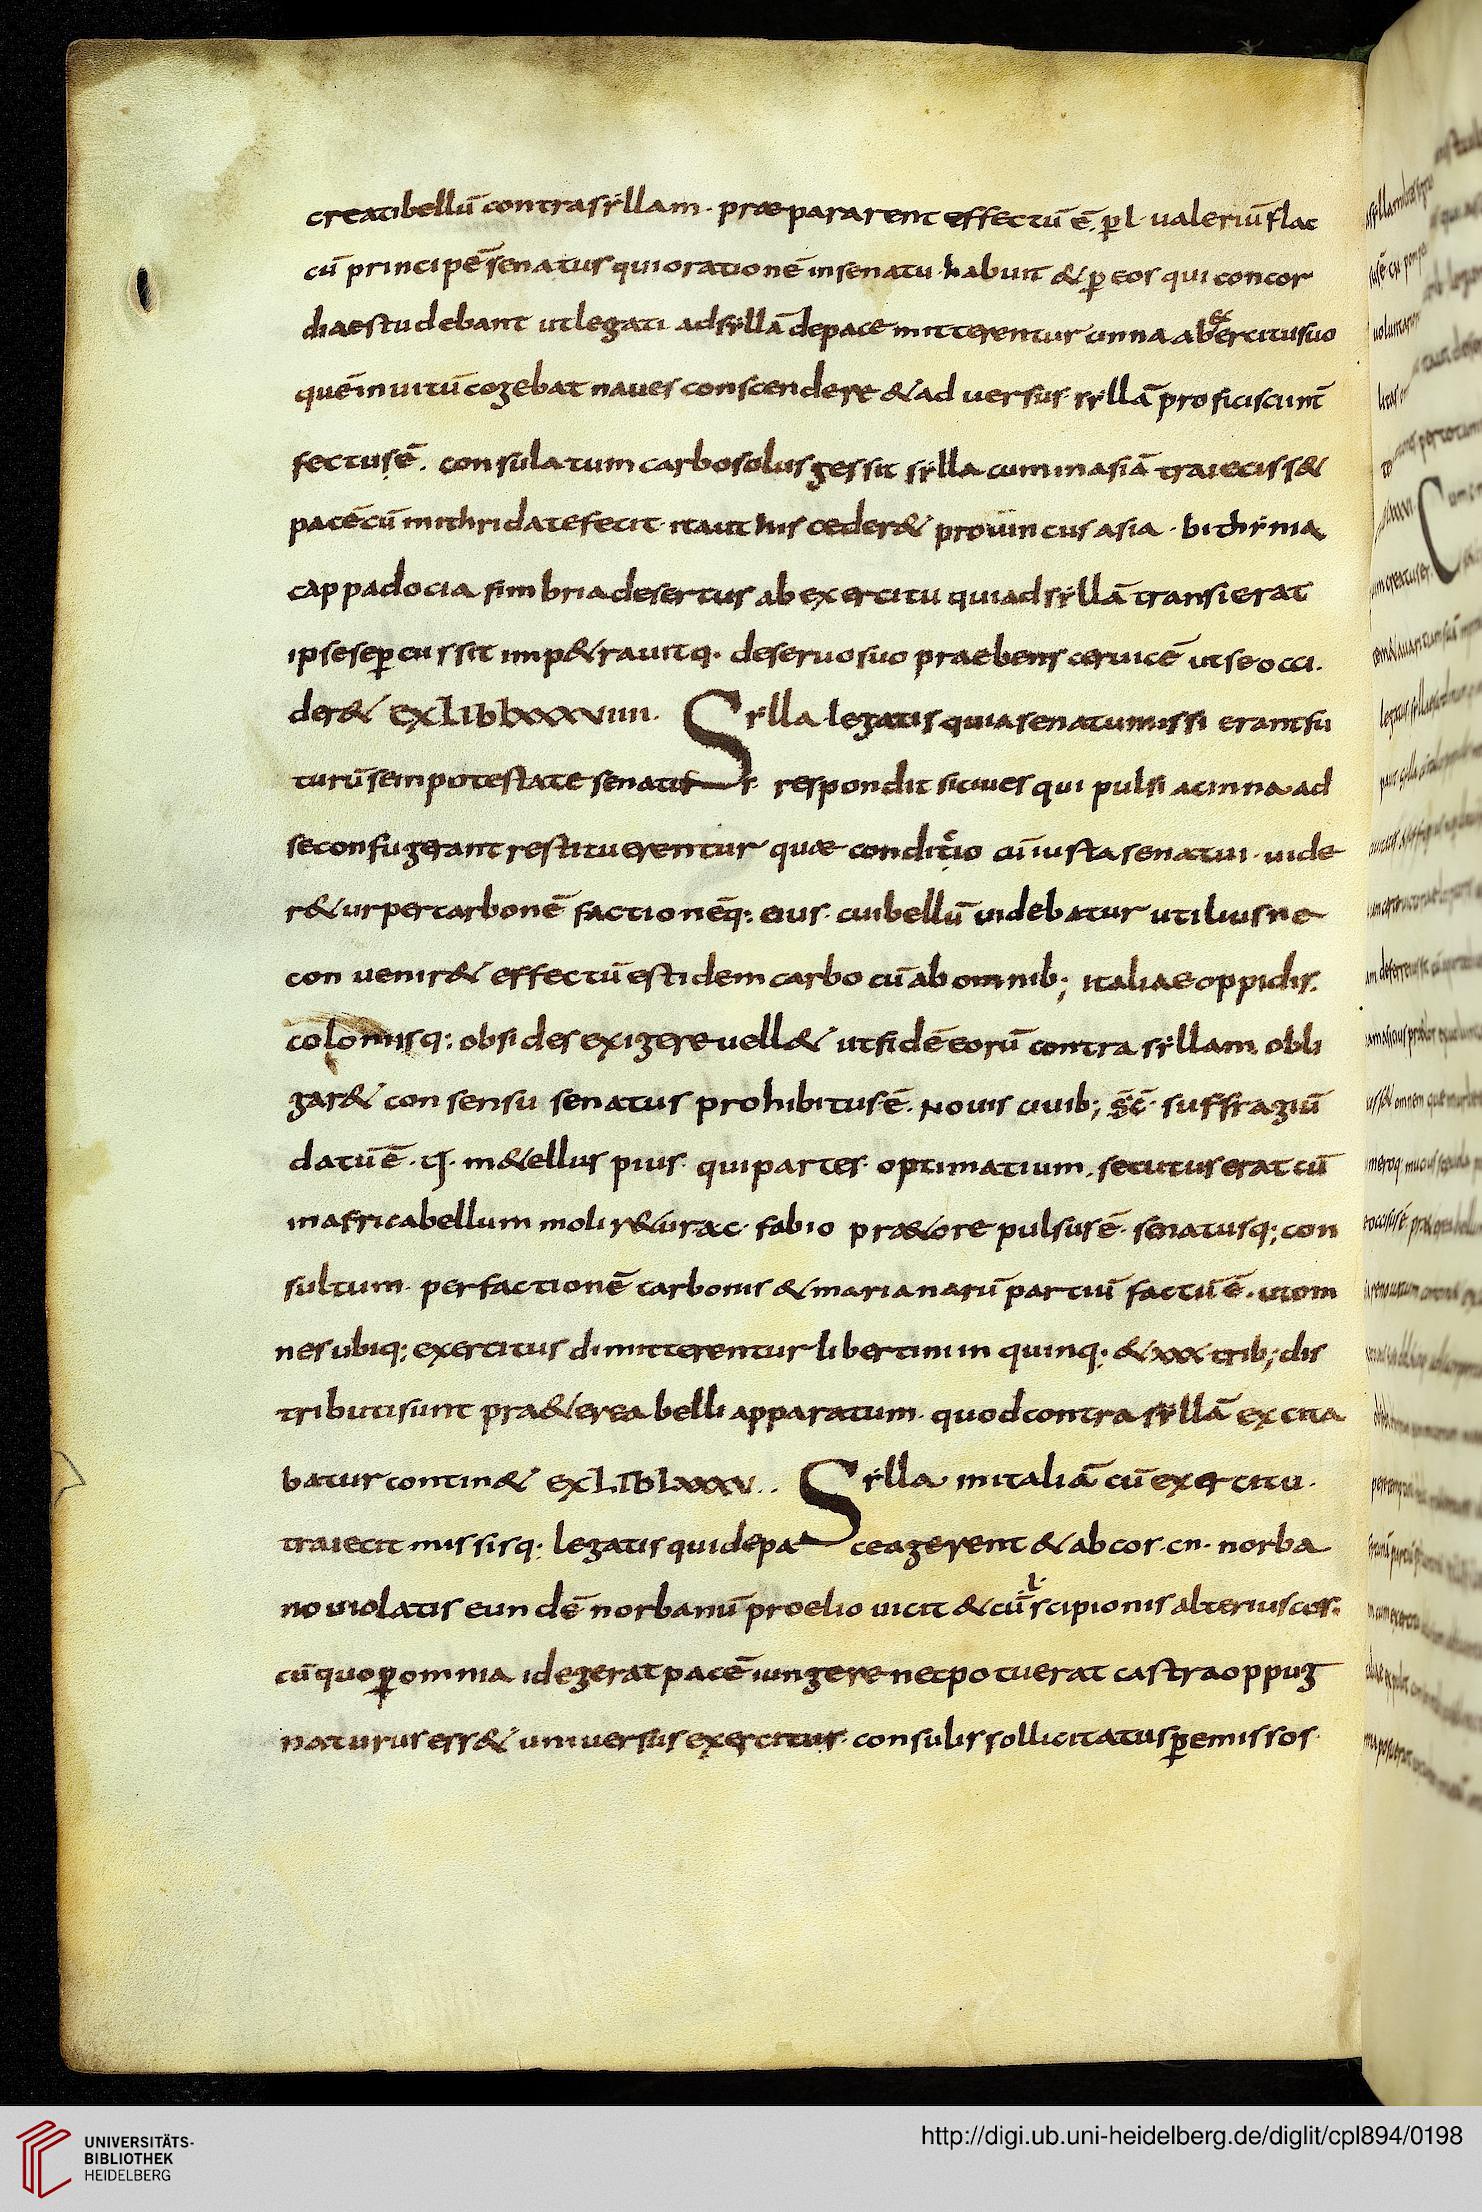 creatibellū contrasẏllam · præpararent effectū ē. ꝑl · ualeriū flac
cū principē senatus qui orationē in senatu · habuit & ꝑ eos qui concor
diae studebant ut legati ad sẏllā de pace mitterentur cinna ab ex ercitu suo
quē inuitū cogebat naues conscendere & aduersus sẏllā proficisci inť
fectus ē. consulatum carbo solus gessit sẏlla cum in asiā traiecis s&
pacē cū mithridate fecit · ita ut his ceder& prouinciis asia · bithẏnia
cappadocia fimbria desertus ab exercitu qui ad sẏllā transierat
ipse se ꝑcussit imp&rauitq. de seruo suo praebens ceruicē ut se occi.
der& EX LIB LXXXVIIII. Sẏlla legatis qui a senatu missi erant fu
turū se in potestate senatus r respondit si ciues qui pulsi a cinna ad
se confugerant restituerentur quæ conditio cū iusta senatui · uide
r&ur per carbonē factionēq: eius · cui bellū uidebatur utilius ne
conuenir& effectū est idem carbo cū ab omnib; italiae oppidis.
colonisq: obsides exigere uell& ut fidē eorū contra sẏllam obli
gar& consensu senatus prohibitus ē. Nouis ciuib; s̄c̄ · suffragiū
datū ē · q. m&ellus pius · qui partes · optimatium. secutus erat cū
in africa bellum molir&ur a c · fabio pr&ore pulsus ē · senatusq; con
sultum · per factionē carbonis & marianarū partiū factū ē · ut om
nes ubiq; exercitus dimitterentur libertini in quinq; & xxx trib; dis
tributi sunt pra&erea belli apparatum · quod contra sẏllā excita
batur contin& EX LIB LXXXV.. Sẏlla in italiā cū exercitu ·
traiecit missisq; legatis qui de pa ce agerent & ab cos · cn · norba
no uiolatis eundē norbanū proelio uicit & cū ·l· scipionis alterius cos.
cū quo ꝑ omnia id egerat pacē iungere nec potuerat castra oppug
naturus ess& uniuersus exercitus · consulis sollicitatus ꝑ emissos ·
UNIVERSITÄTS-
BIBLIOTHEK
HEIDELBERG
http://digi.ub.uni-heidelberg.de/diglit/cpl894/0198